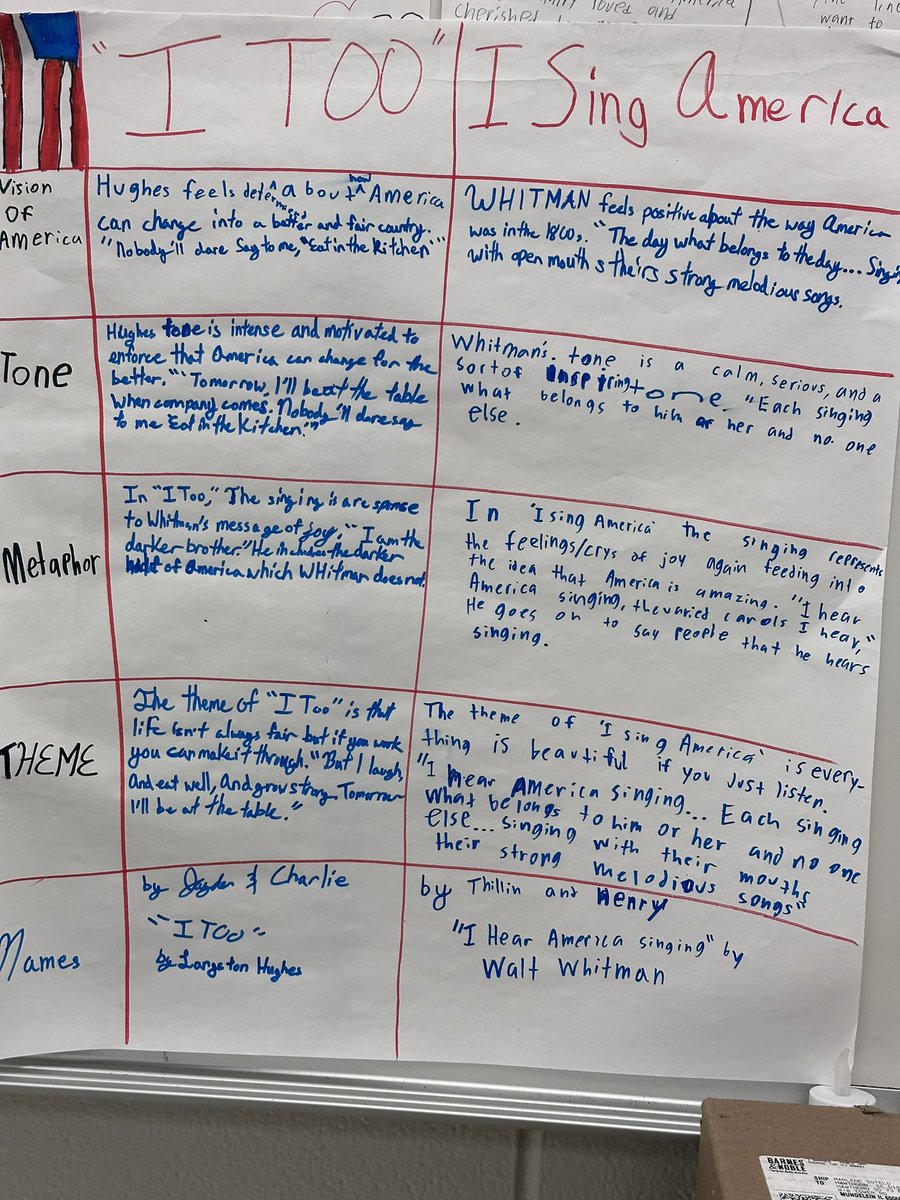 cherished
loved and
want to
"I TOO"
I Sing America
Vision
Of
America
Hughes feels determined about how America
can change into a better and fair country.
"Nobody'll dare Say to me, "Eat in the Kitchen""
WHITMAN feels positive about the way America
was in the 1800s. "The day what belongs to the day... Singing
with open mouths theirs strong melodious songs.
Tone
Hughes tone is intense and motivated to
enforce that America can change for the
better. "Tomorrow, I'll be at the table
when company comes. Nobody'll dare say
to me 'Eat in the Kitchen.'"
Whitman's. tone is a calm, serious, and a
sort of inspiring tone. "Each singing
what belongs to him or her and no one
else.
Metaphor
In "I Too," The singing is a response
to Whitman's message of joy. "I am the
darker brother." He includes the darker
of America which WHitman does not.
In 'I sing America' the singing represents
the feelings/crys of joy again feeding into
the idea that America is amazing. "I hear
America singing, the varied carols I hear,"
He goes on to say people that he hears
singing.
THEME
The theme of "I Too" is that
life isn't always fair but if you work
you can make it through. "But I laugh,
And eat well, And grow strong. Tomorrow
I'll be at the table."
The theme of 'I sing America' is every-
thing is beautiful if you just listen.
"I hear America singing... Each singing
what belongs to him or her and no one
else... singing with their mouths
their strong melodious songs"
Names
by Jayden & Charlie
"I TOO"
by Langston Hughes
by Thillin and Henry
"I Hear America singing" by
Walt Whitman
BARNES
& NOBLE
SHIP
TO:
MARLENE SOTELO
MUNDELEIN IL